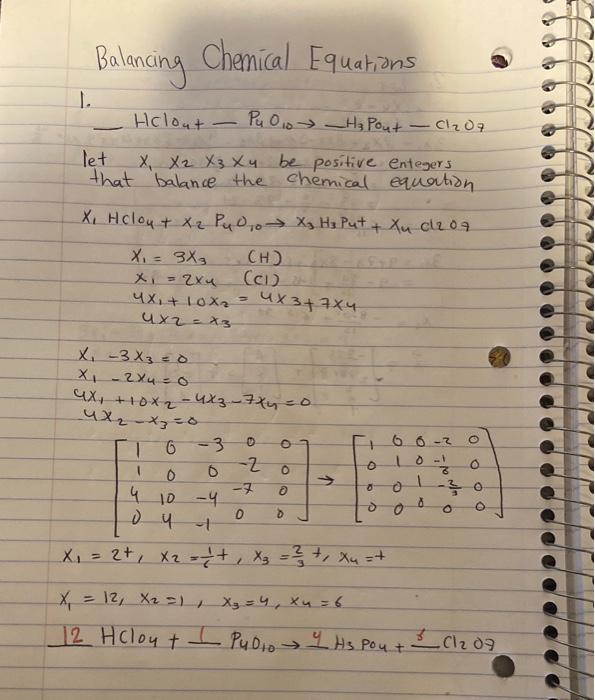 Balancing Chemical Equations
1.
__ HClO4 + __ P4O10 → __ H3PO4 + __ Cl2O7
let x1 x2 x3 x4 be positive entegers
that balance the chemical equation
x1 HClO4 + x2 P4O10 → x3 H3P4+ + x4 Cl2O7
x1 = 3x3 (H)
x1 = 2x4 (Cl)
4x1 + 10x2 = 4x3 + 7x4
4x2 = x3
x1 - 3x3 = 0
x1 - 2x4 = 0
4x1 + 10x2 - 4x3 - 7x4 = 0
4x2 - x3 = 0
1 0 -3 0 0 1 0 0 -2 0
1 0 0 -2 0 0 1 0 -1/6 0
4 10 -4 -7 0 → 0 0 1 -2/3 0
0 4 -1 0 0 0 0 0 0 0
x1 = 2t, x2 = 1/6 t, x3 = 2/3 t, x4 = t
x1 = 12, x2 = 1, x3 = 4, x4 = 6
12 HClO4 + 1 P4O10 → 4 H3PO4 + Cl2O7